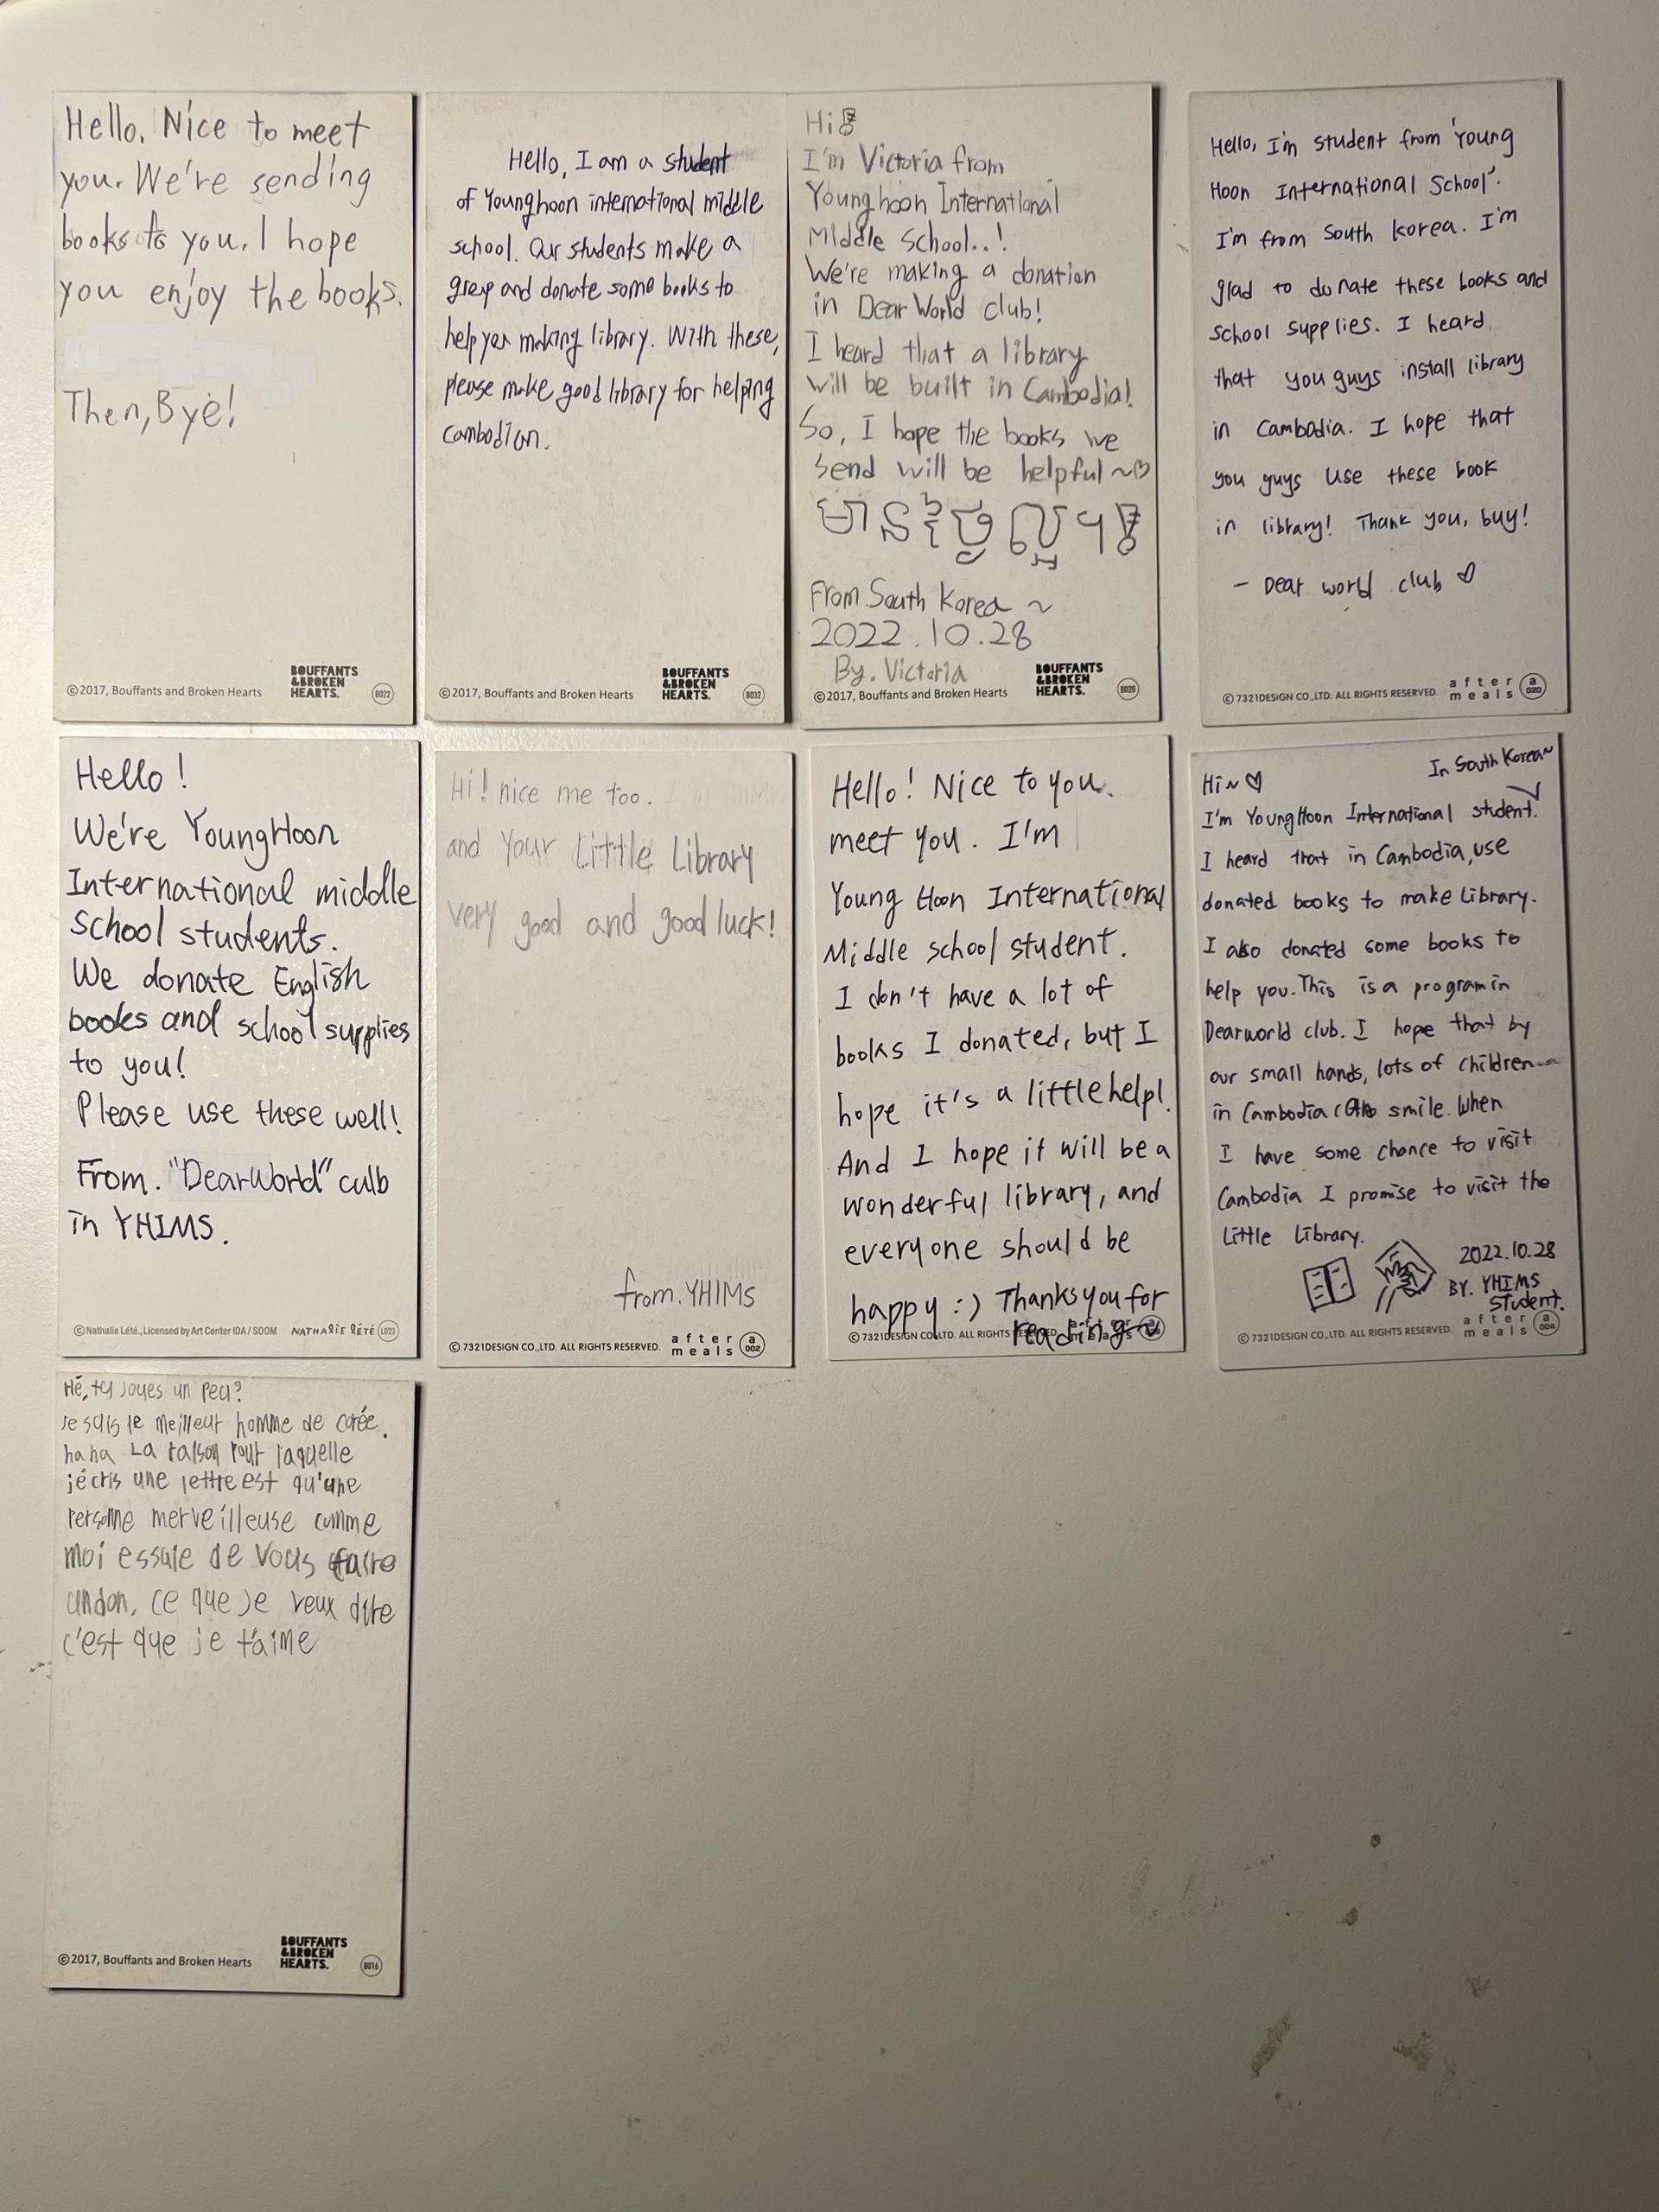 Hello. Nice to meet
you. We're sending
books to you. I hope
you enjoy the books.
Then, Bye!
©2017, Bouffants and Broken Hearts
BOUFFANTS
&BROKEN
HEARTS.
B022
Hello, I am a student
of Younghoon international middle
school. Our students make a
and donate some books to
help making library. With these,
please make good library for helping
cambodian.
©2017, Bouffants and Broken Hearts
BOUFFANTS
&BROKEN
HEARTS.
B032
Hi!
I'm Victoria from
Younghoon International
Middle School..!
We're making a donation
in Dear World club!
I heard that a library
will be built in Cambodia!
So, I hope the books we
send will be helpful ~♡
From. South Korea ~
2022.10.28
By. Victoria
©2017, Bouffants and Broken Hearts
BOUFFANTS
&BROKEN
HEARTS.
B020
Hello, I'm student from 'Young
Hoon International School'.
I'm from South Korea. I'm
glad to donate these books and
school supplies. I heard
that you guys install library
in Cambodia. I hope that
you guys use these book
in library! Thank you, buy!
- Dear world club ♡
© 7321DESIGN CO.,LTD. ALL RIGHTS RESERVED.
after
meals
a
020
Hello!
We're YoungHoon
International middle
school students.
We donate English
books and school supplies
to you!
Please use these well!
From. "DearWorld" culb
in YHIMS.
© Nathalie Lété., Licensed by Art Center IDA / SOOM
NATHALIE LÉTÉ
L023
Hi! nice me too.
and Your Little Library
very good and good luck!
from. YHIMS
© 7321DESIGN CO.,LTD. ALL RIGHTS RESERVED.
after
meals
a
002
Hello! Nice to you.
meet you. I'm
Young Hoon International
Middle school student.
I don't have a lot of
books I donated, but I
hope it's a little help!
And I hope it will be a
wonderful library, and
everyone should be
happy :) Thanks you for
reading~
© 7321DESIGN CO.,LTD. ALL RIGHTS
In South Korea~
Hi~ ♡
I'm YoungHoon International student.
I heard that in Cambodia, use
donated books to make library.
I also donated some books to
help you. This is a program in
Dearworld club. I hope that by
our small hands, lots of children
in Cambodia can smile. When
I have some chance to visit
Cambodia I promise to visit the
Little Library.
2022.10.28
BY. YHIMS
student.
© 7321DESIGN CO.,LTD. ALL RIGHTS RESERVED.
after
meals
a
004
Hé, tu joues un peu?
Je suis le meilleur homme de corée.
ha ha La raison pour laquelle
j'écris une lettre est qu'une
personne merveilleuse comme
moi essaie de vous faire
un don, ce que je veux dire
c'est que je t'aime
©2017, Bouffants and Broken Hearts
BOUFFANTS
&BROKEN
HEARTS.
B016